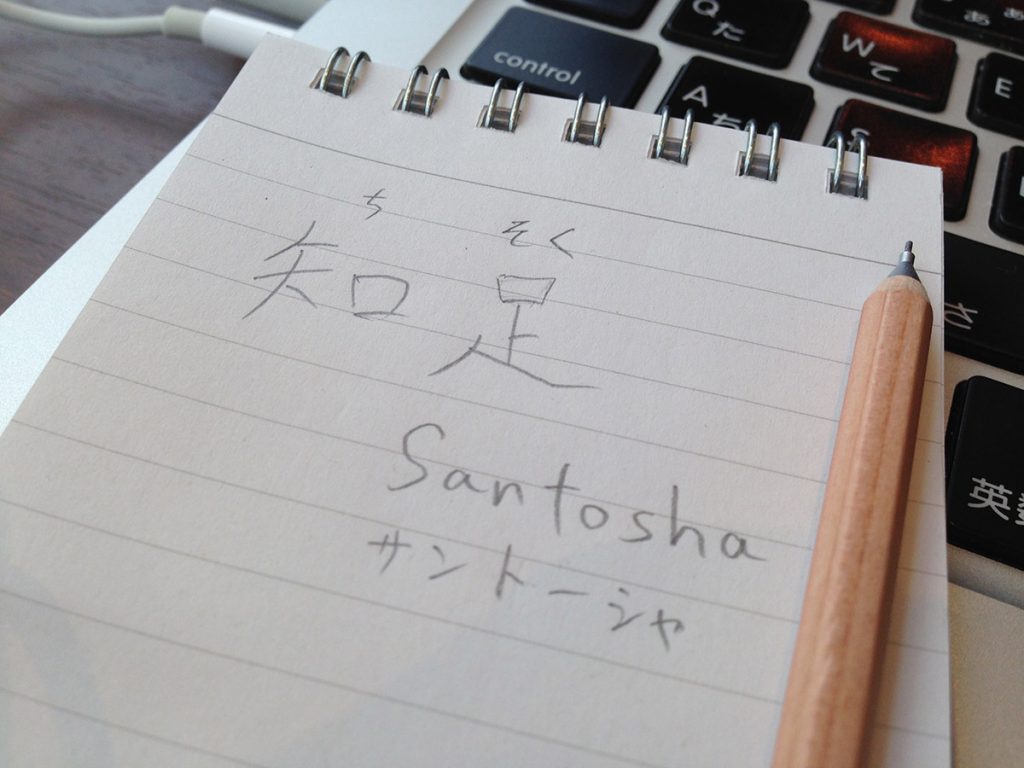 control
Q
た
W
て
E
あ
ぁ
A
ち
S
さ
英
ち そく
知足
Santosha
サントーシャ